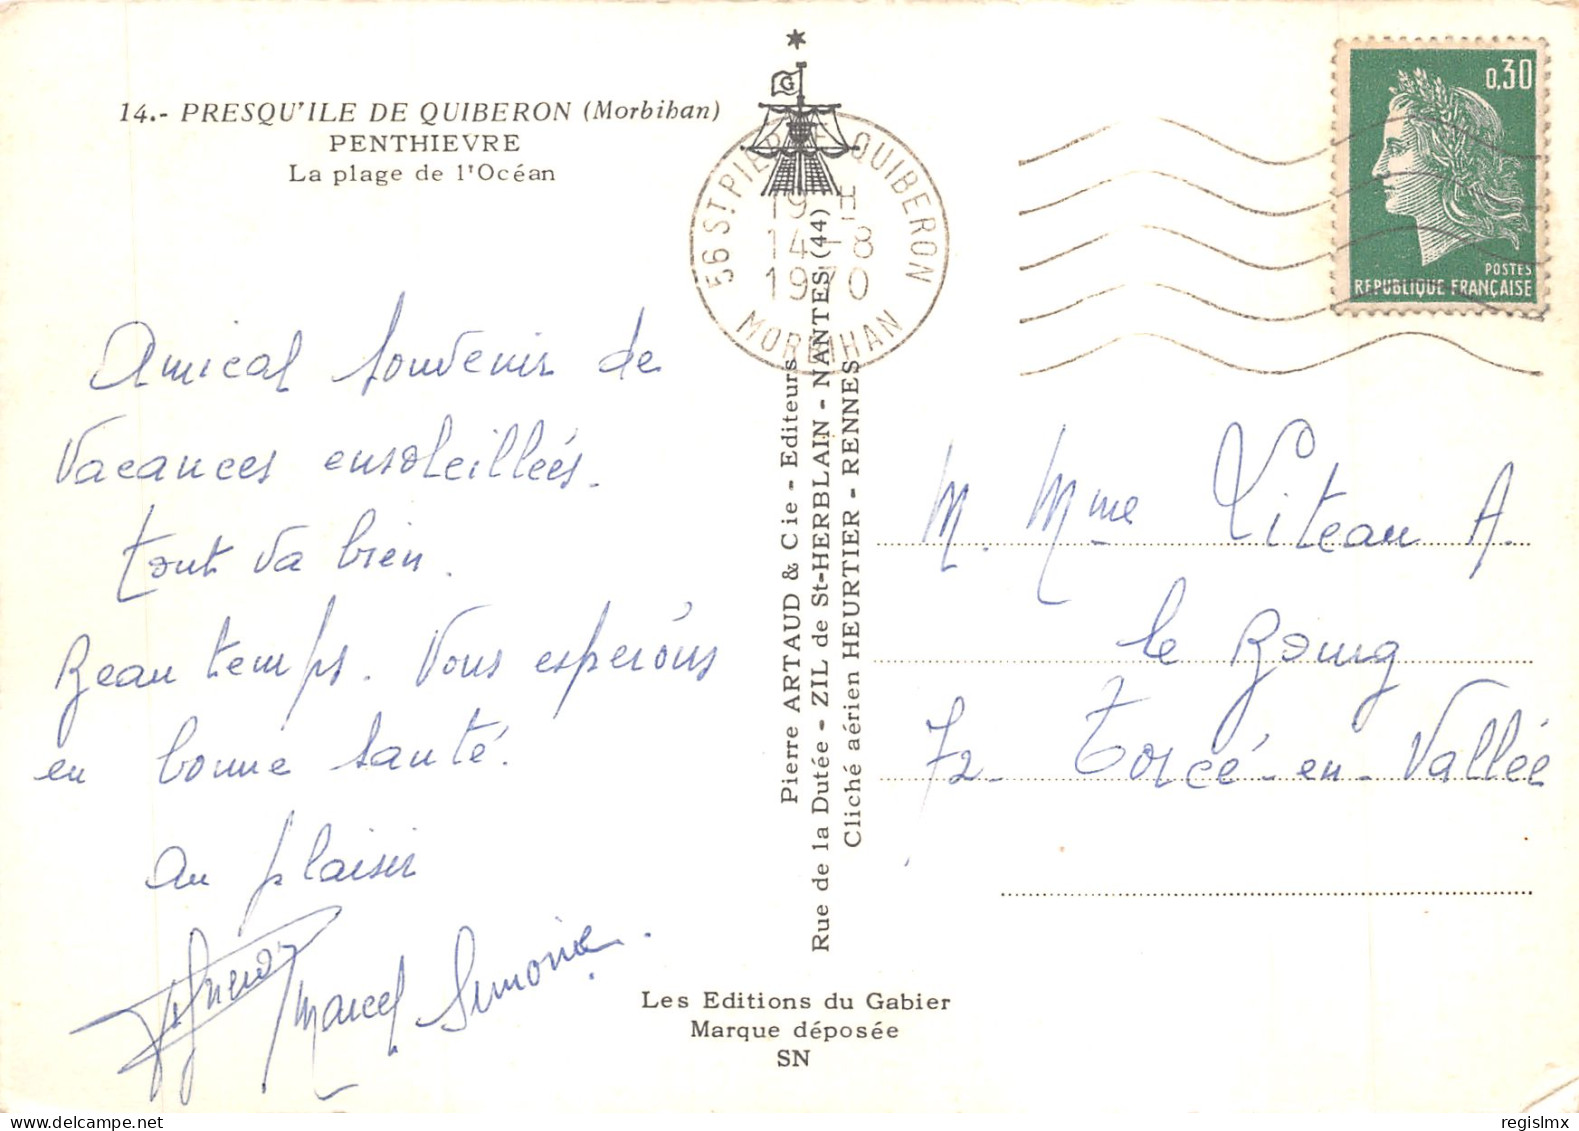 14.- PRESQU'ILE DE QUIBERON (Morbihan)
PENTHIEVRE
La plage de l'Océan
G
56 ST PIERRE QUIBERON
19 H
14-8
1970
MORBIHAN
0,30
POSTES
REPUBLIQUE FRANÇAISE
Amical souvenir de
Vacances ensoleillées.
tout va bien.
Beau temps. Vous espérons
en bonne santé.
au plaisir
Marcel Simone.
Pierre ARTAUD & Cie - Editeurs
Rue de la Dutée - ZIL de St-HERBLAIN - NANTES (44)
Cliché aérien HEURTIER - RENNES
M. Mme Liteau A.
le Bourg
72 - Torcé-en-Vallée
Les Editions du Gabier
Marque déposée
SN
regislmx